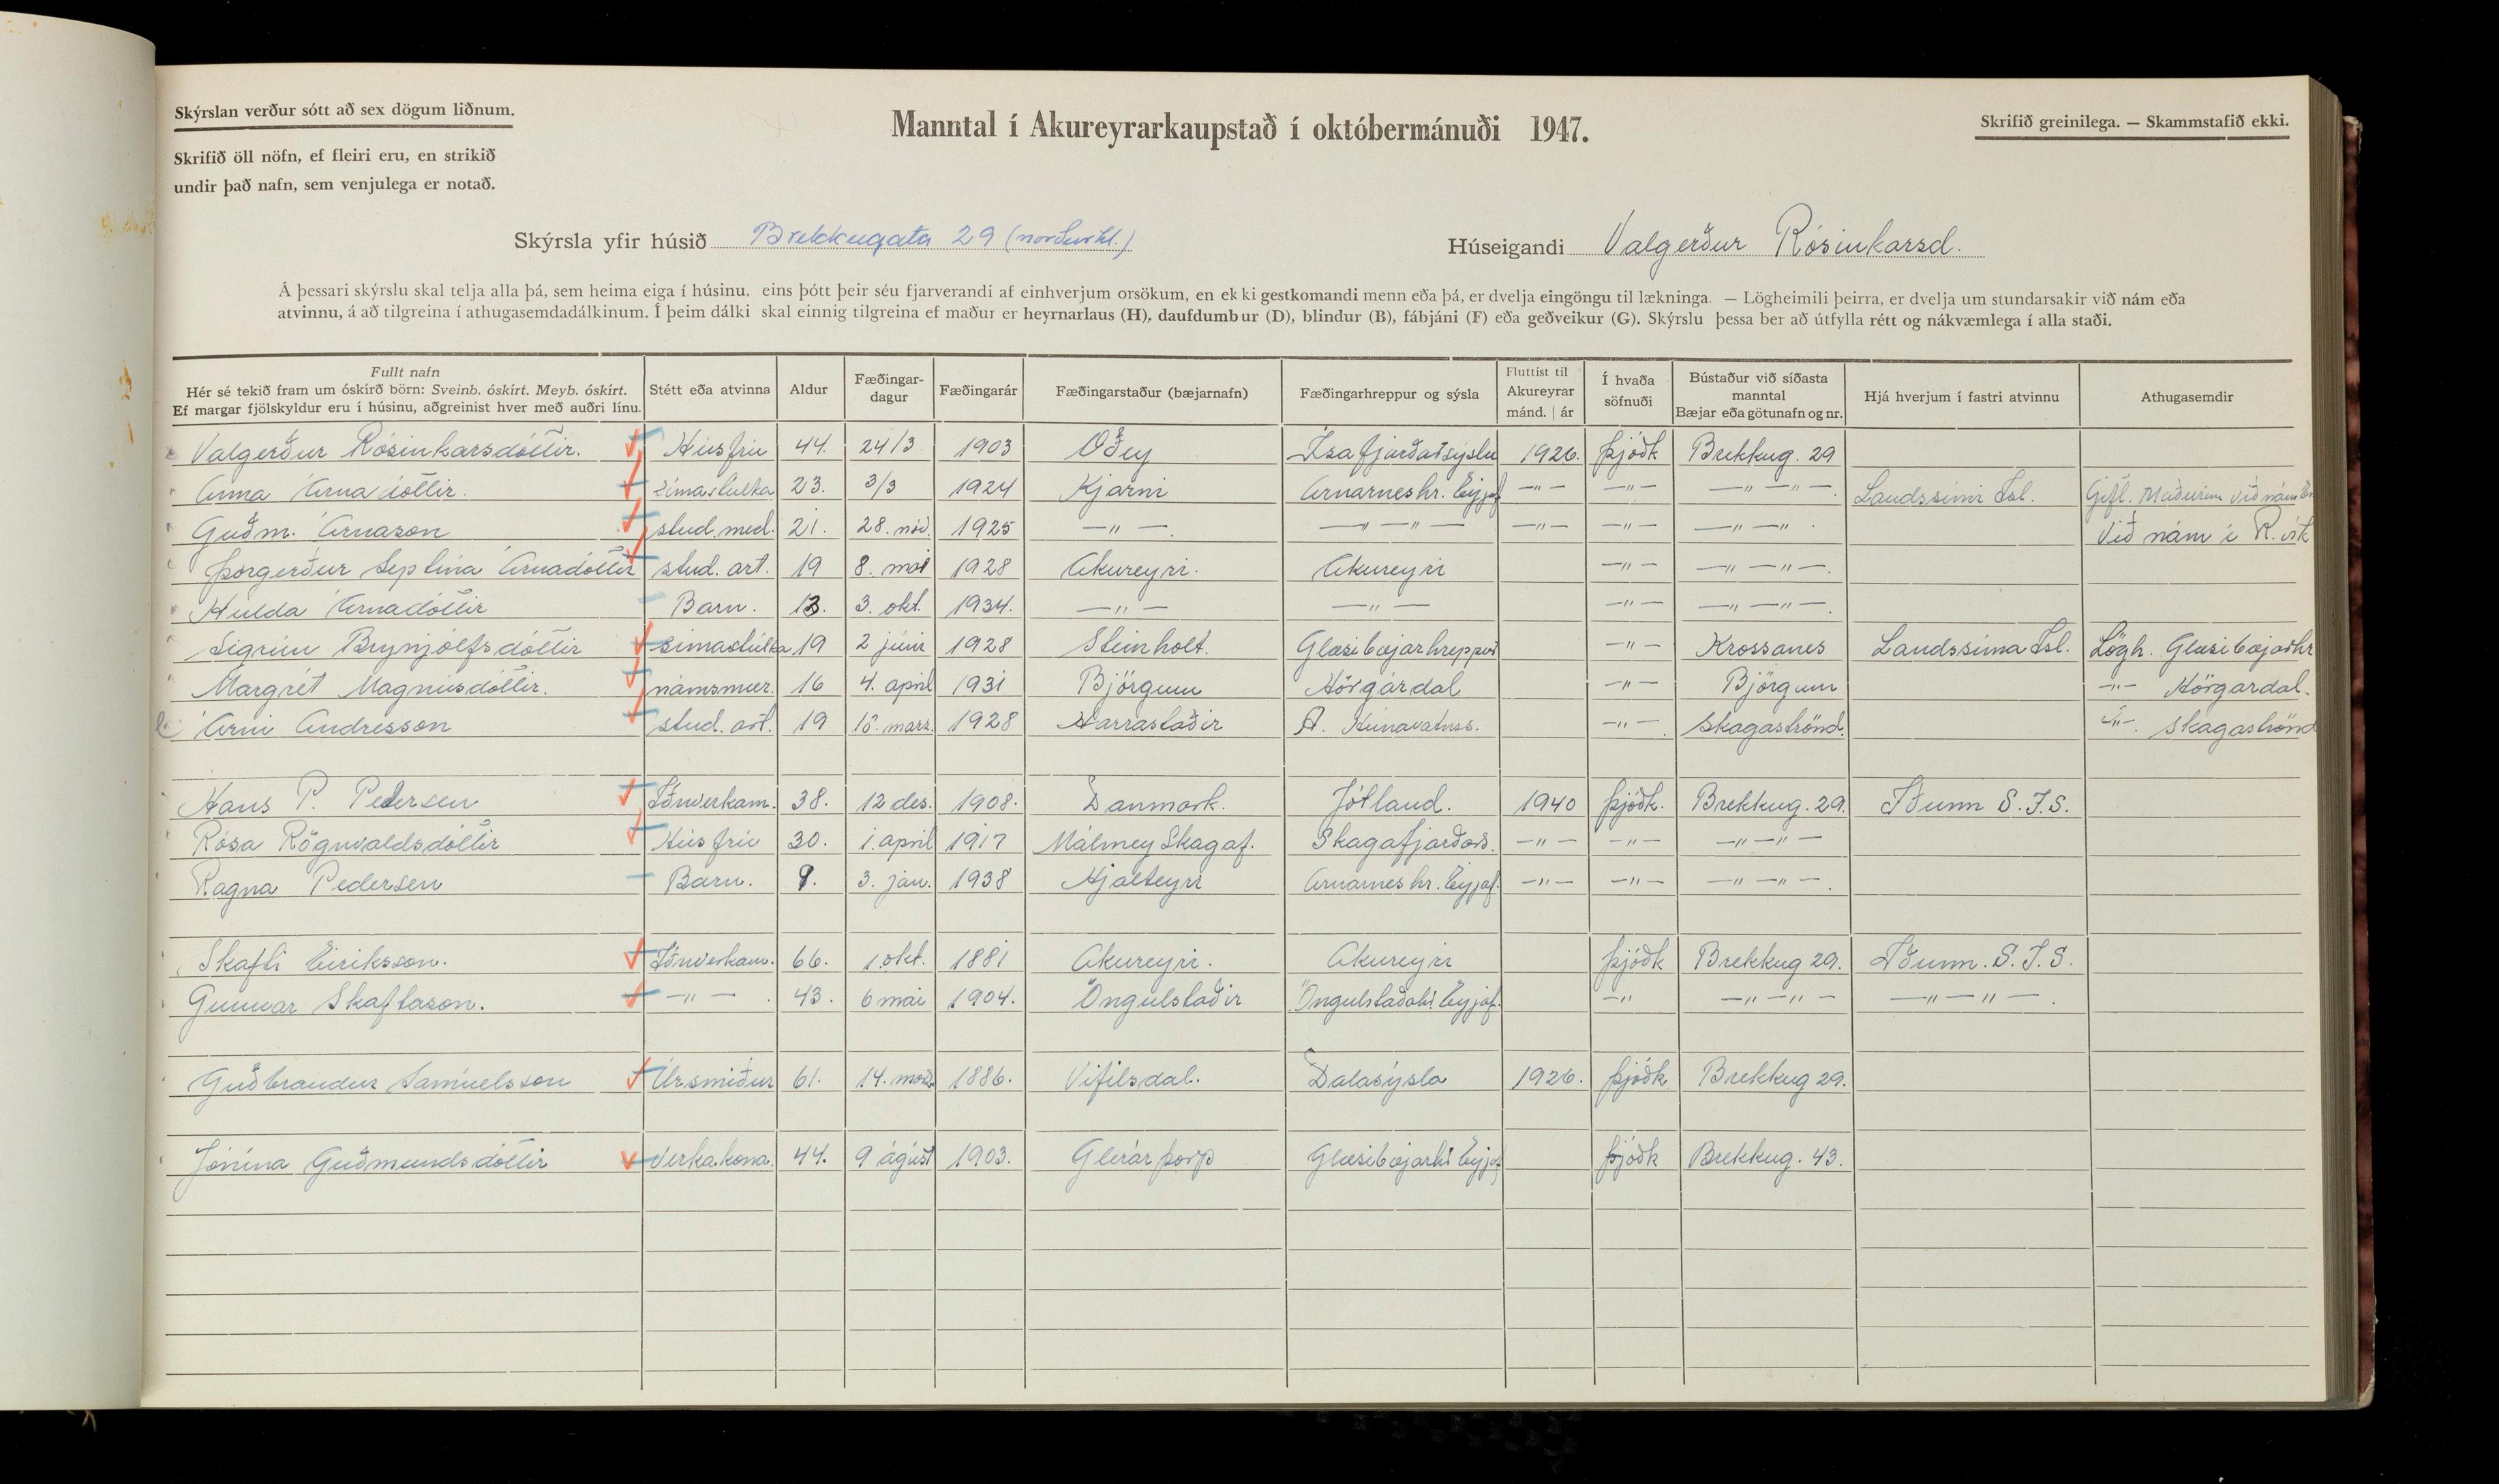 Skýrslan verður sótt að sex dögum liðnum.
Skrifið öll nöfn, ef fleiri eru, en strikið
undir það nafn, sem venjulega er notað.
Manntal í Akureyrarkaupstað í októbermánuði 1947.
Skrifið greinilega. — Skammstafið ekki.
Skýrsla yfir húsið Brekkugata 29 (norðurhl.)
Húseigandi Valgerður Rósinkarsd.
Á þessari skýrslu skal telja alla þá, sem heima eiga í húsinu, eins þótt þeir séu fjarverandi af einhverjum orsökum, en ekki gestkomandi menn eða þá, er dvelja eingöngu til lækninga. — Lögheimili þeirra, er dvelja um stundarsakir við nám eða
atvinnu, á að tilgreina í athugasemdadálkinum. Í þeim dálki skal einnig tilgreina ef maður er heyrnarlaus (H), daufdumbur (D), blindur (B), fábjáni (F) eða geðveikur (G). Skýrslu þessa ber að útfylla rétt og nákvæmlega í alla staði.
Fullt nafn
Hér sé tekið fram um óskírð börn: Sveinb. óskírt. Meyb. óskírt.
Ef margar fjölskyldur eru í húsinu, aðgreinist hver með auðri línu.
Stétt eða atvinna
Aldur
Fæðingar-
dagur
Fæðingarár
Fæðingarstaður (bæjarnafn)
Fæðingarhreppur og sýsla
Fluttist til
Akureyrar
mánd. | ár
Í hvaða
söfnuði
Bústaður við síðasta
manntal
Bæjar eða götunafn og nr.
Hjá hverjum í fastri atvinnu
Athugasemdir
Valgerður Rósinkarsdóttir. Húsfrú 44. 24/3 1903 Øðey Ísafjarðarsýslu 1926. þjóðk Brekkug. 29
Anna Árnadóttir. Símastulka 23. 3/3 1924 Kjarni Arnarneshr. Eyjaf —"— —"— —"—"—. Landssími Ísl. Gift. Maðurinn við nám
Guðm. Árnason stud. med. 21. 28. nóv. 1925 —"—. —"—"— —"— —"— —"—". Við nám í R.vík
Þorgerður Septína Árnadóttir stud. art. 19 8. maí 1928 Akureyri. Akureyri —"— —"—"—.
Hulda Árnadóttir Barn. 13. 3. okt. 1934. —"— —"— —"— —"—"—.
Sigrún Brynjólfsdóttir símastúlka 19 2 júní 1928 Steinholt. Glæsibæjarhreppur —"— Krossanes Landssíma Ísl. Lögh. Glæsibæjarhr
Margrét Magnúsdóttir. námsmær. 16 4. apríl 1931 Björgum Hörgárdal —"— Björgum —"— Hörgardal.
Árni Andresson stud. art. 19 13. marz. 1928 Harrastaðir A. Húnavatnss. —"—. Skagaströnd. —"—. Skagaströnd
Hans P. Pedersen Iðnverkam. 38. 12 des. 1908. Danmark. Jótland. 1940 þjóðk. Brekkug. 29. Iðunn S.Í.S.
Rósa Rögnvaldsdóttir Húsfrú 30. 1. apríl 1917 Málmey Skagaf. Skagafjarðars. —"— —"— —"—"—
Ragna Pedersen Barn. 9. 3. jan. 1938 Hjalteyri Arnarneshr. Eyjaf. —"— —"— —"—"—.
Skafti Eiríksson. Iðnverkam. 66. 1. okt. 1881 Akureyri. Akureyri þjóðk Brekkug 29. Iðunn. S.Í.S.
Gunnar Skaftason. —"—. 43. 6 maí 1904. Öngulstaðir Öngulstaðahr. Eyjaf. —" —"—"— —"—"—.
Guðbrandur Samúelsson Úrsmiður 61. 14. 1886. Vífilsdal. Dalasýsla 1926. þjóðk Brekkug 29.
Jónína Guðmundsdóttir Verkakona. 44. 9 ágúst 1903. Glerárþorp Glæsibæjarhr. Eyjaf þjóðk Brekkug. 43.